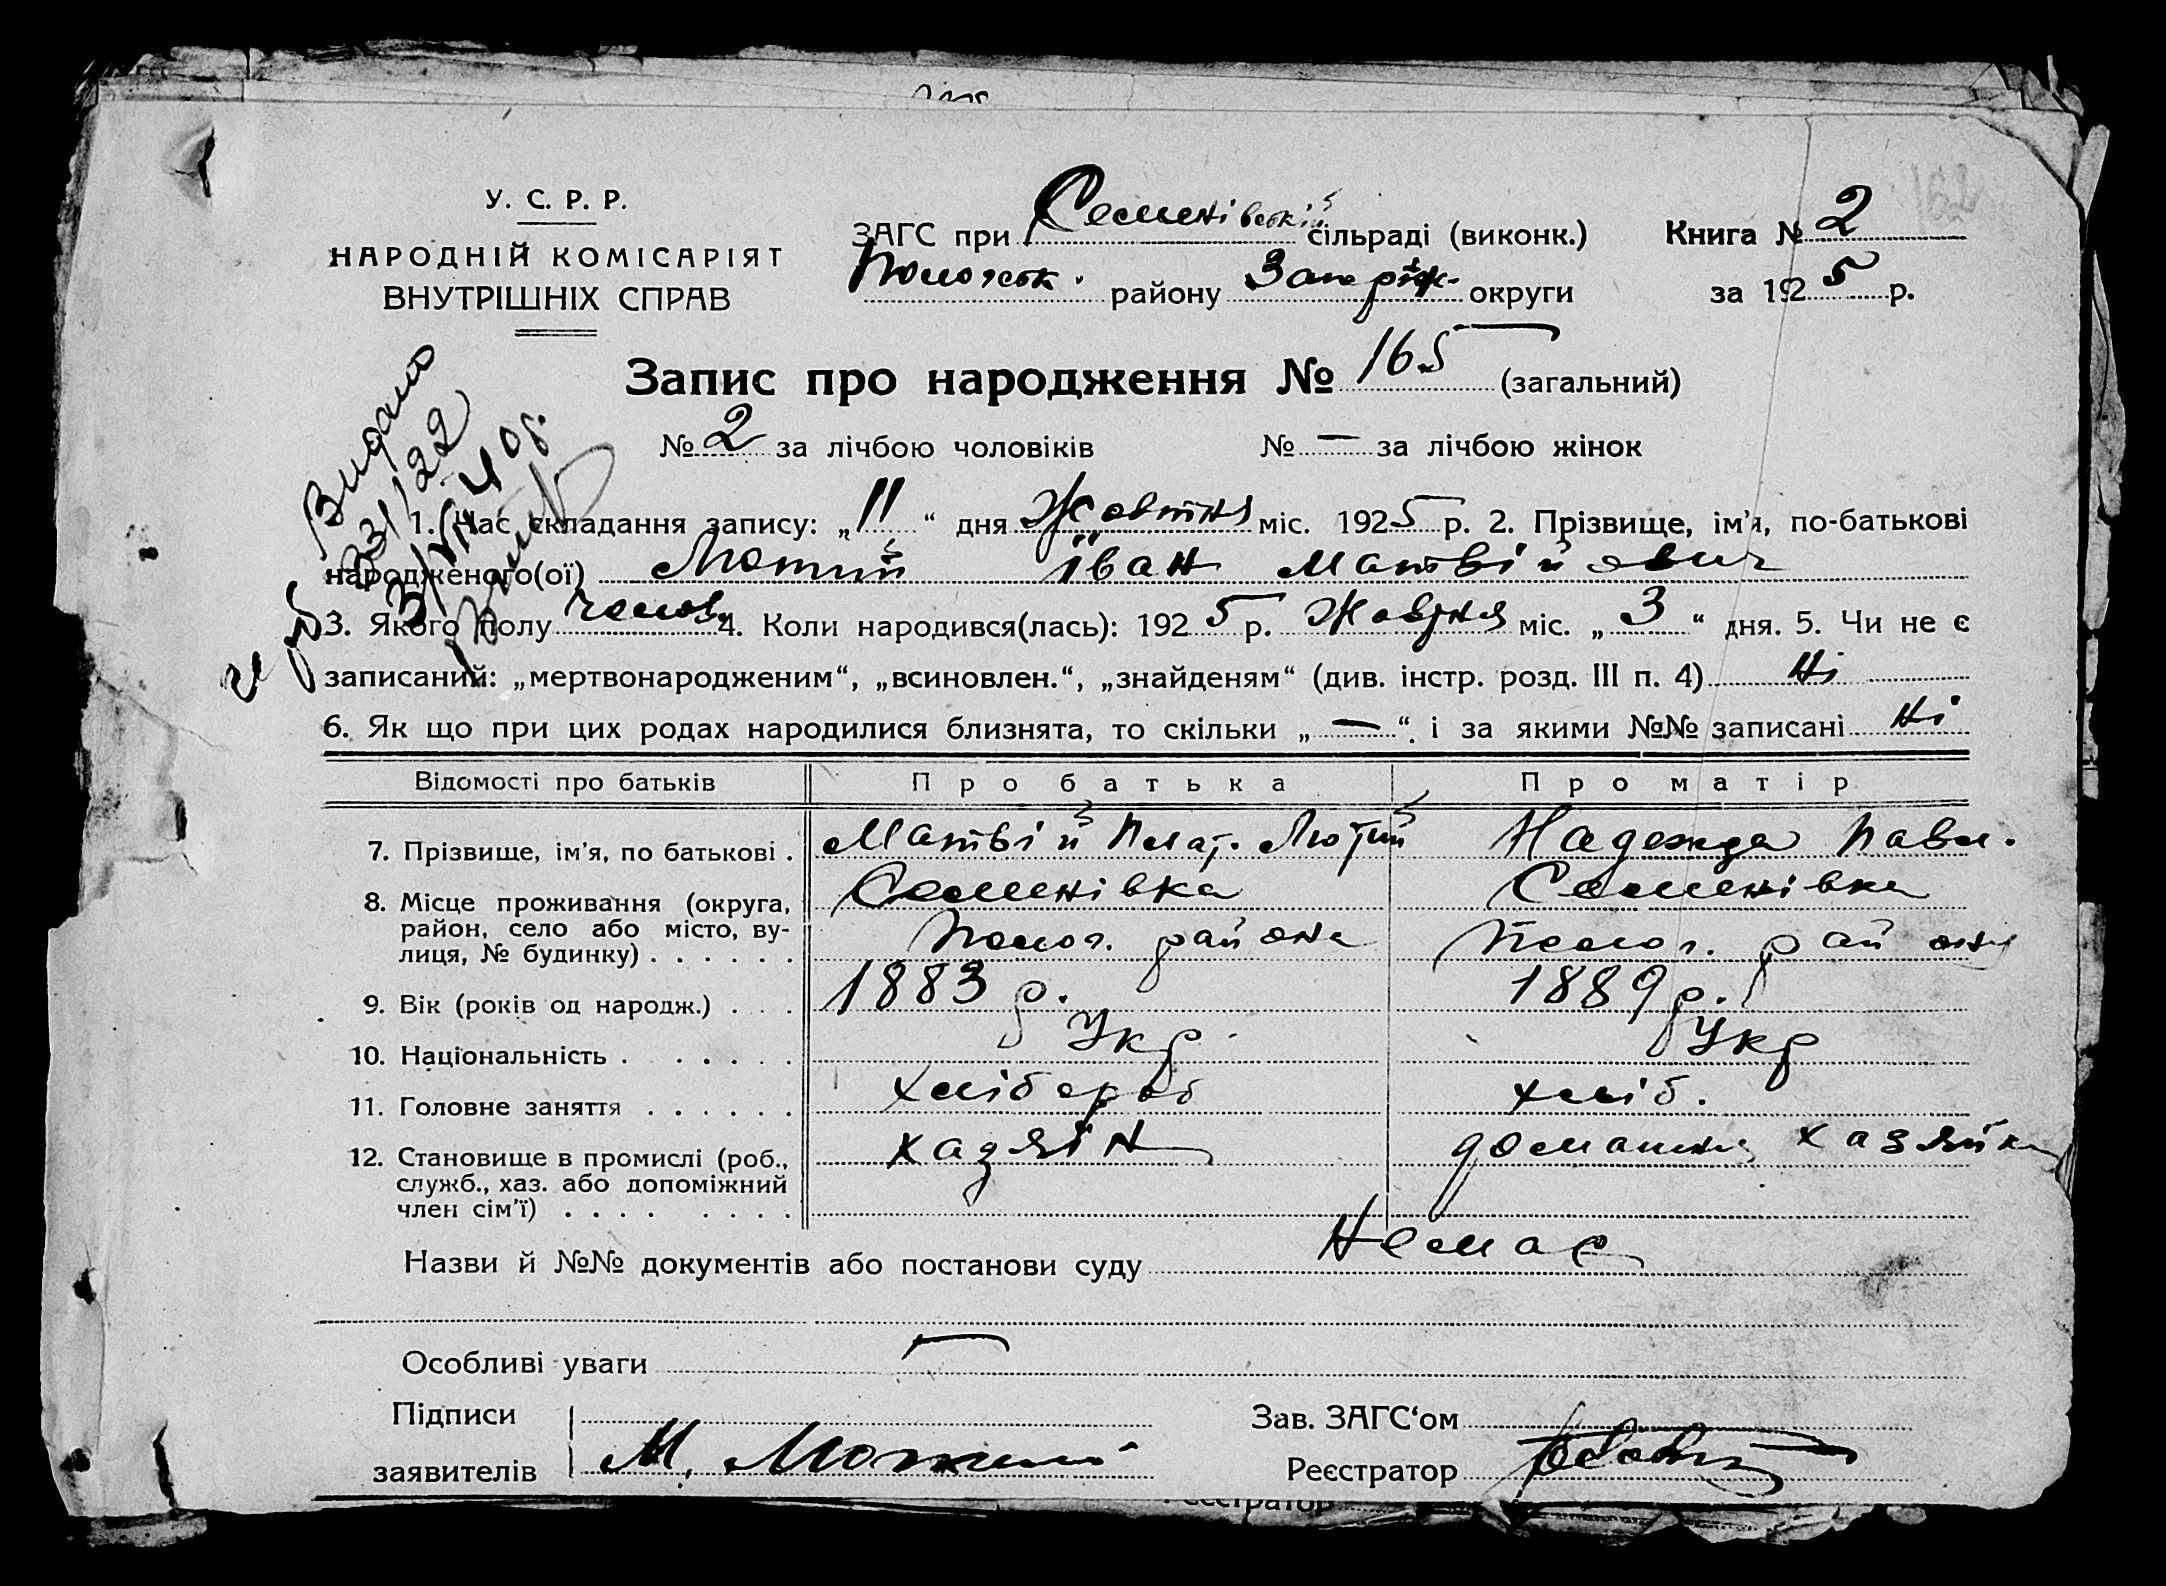 У. С. Р. Р.
НАРОДНІЙ КОМІСАРІЯТ
ВНУТРІШНІХ СПРАВ
ЗАГС при Семенівській сільраді (виконк.)
Пологськ. району Запоріж. округи
Книга № 2
за 1925 р.
Запис про народження № 165 (загальний)
№ 2 за лічбою чоловіків № — за лічбою жінок
Видано
1. Час складання запису: „11“ дня Жовтня міс. 1925 р. 2. Прізвище, ім'я, по-батькові
народженого(ої) Лютий Іван Матвійович
3. Якого полу чолов. 4. Коли народився(лась): 1925 р. Жовтня міс. „3“ дня. 5. Чи не є
записаний: „мертвонародженим“, „всиновлен.“, „знайденям“ (див. інстр. розд. III п. 4) Ні
6. Як що при цих родах народилися близнята, то скільки „—“. і за якими №№ записані Ні
Відомості про батьків Про батька Про матір
7. Прізвище, ім'я, по батькові . Матвій Плат. Лютий Надежда Павл.
8. Місце проживання (округа, Семенівка Семенівка
район, село або місто, ву-
лиця, № будинку) . . . . . . Полог. района Полог. району
9. Вік (років од народж.) . . . 1883 р. 1889 р.
10. Національність . . . . . . Укр. Укр
11. Головне заняття . . . . . . хлібороб хліб.
12. Становище в промислі (роб., хазяїн домашня хазяйка
служб., хаз. або допоміжний
член сім'ї) . . . . . . . .
Назви й №№ документів або постанови суду Немає
Особливі уваги —
Підписи
заявителів М. Лютий
Зав. ЗАГС'ом
Реєстратор
Реєстратор